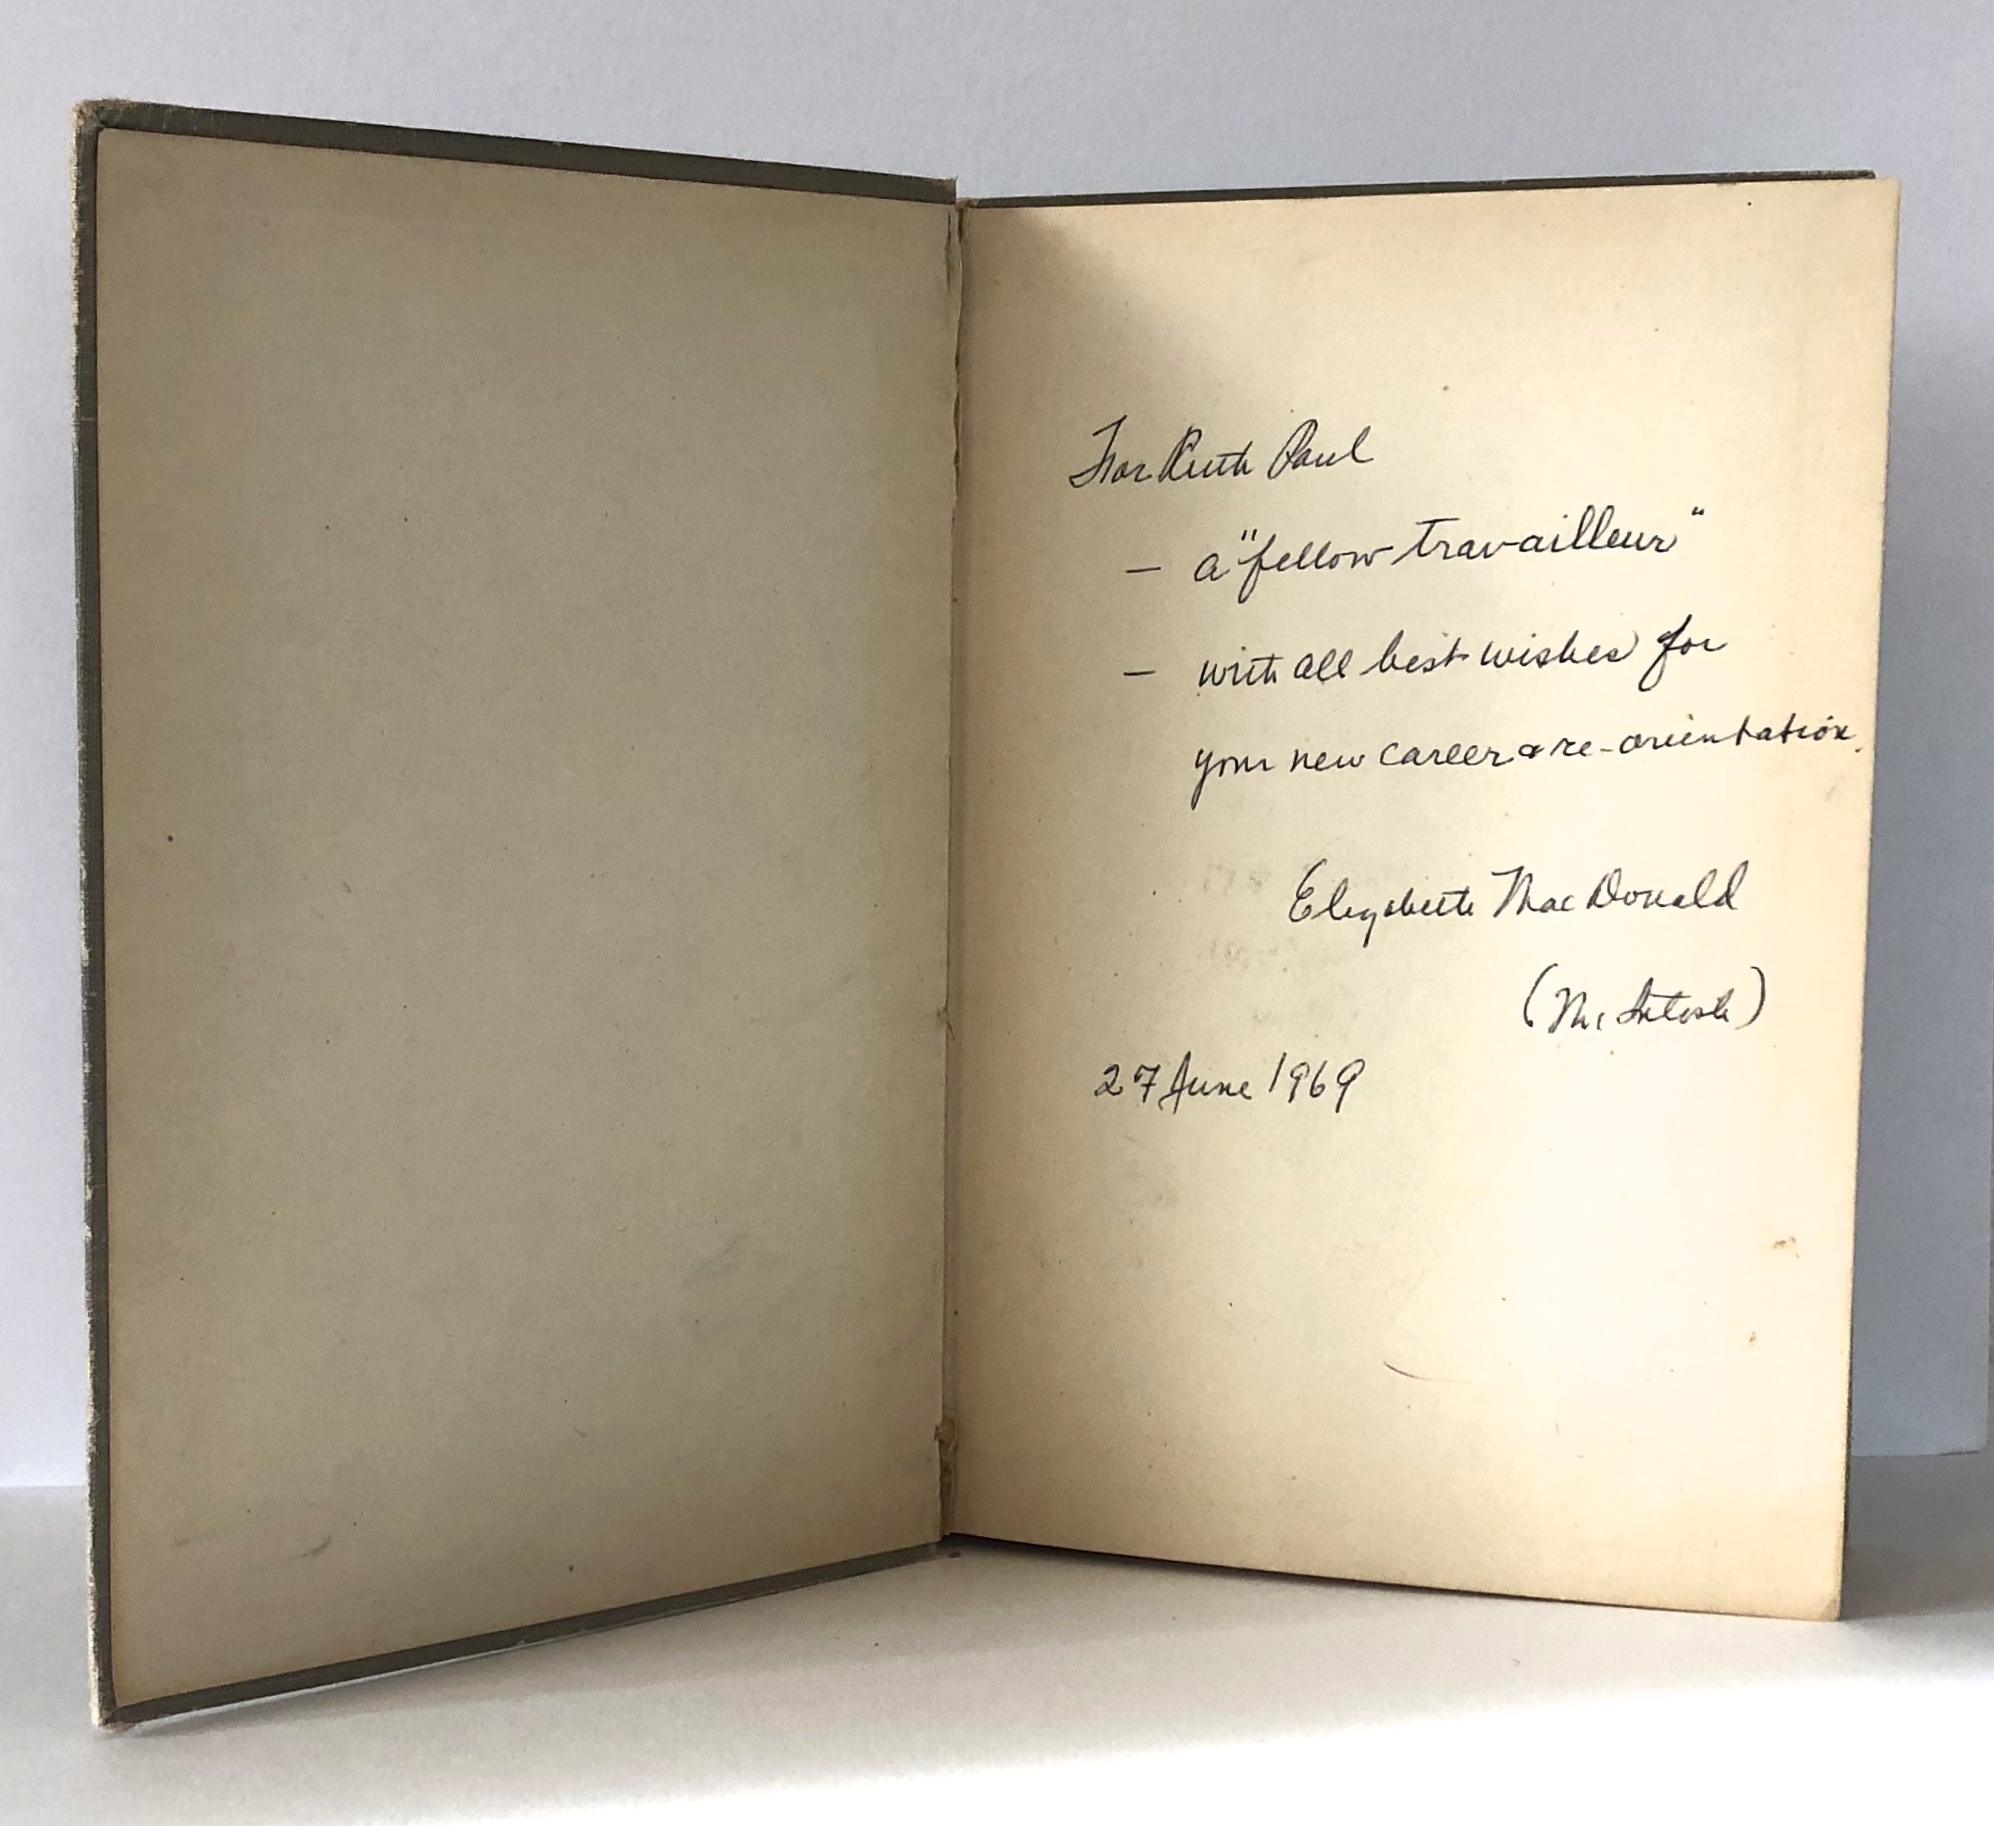 For Ruth Paul
— a "fellow travailleur"
— with all best wishes for
your new career & re-orientation.
Elizabeth MacDonald
(McIntosh)
27 June 1969